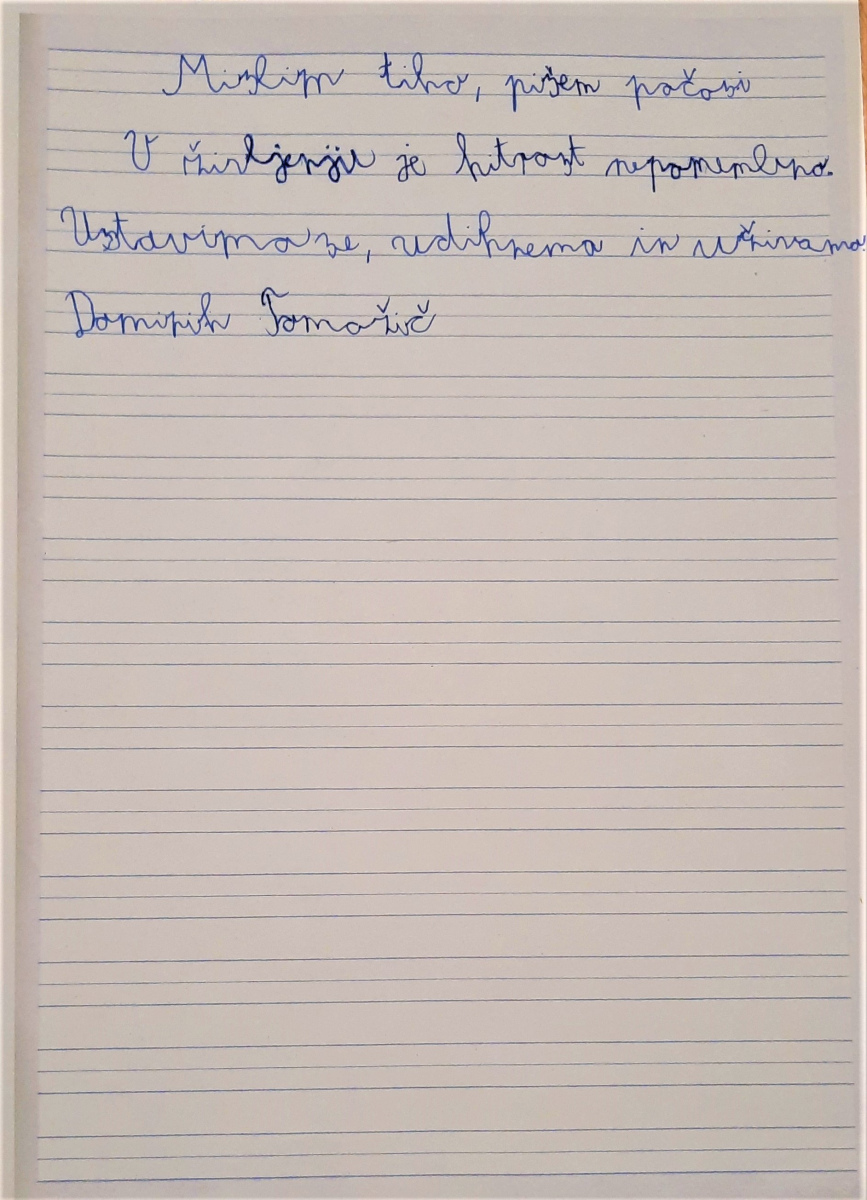 Mislim tiho, pišem počasi
V življenju je hitrost nepomembna.
Ustavimo se, vdihnemo in uživamo.
Dominik Tomažič